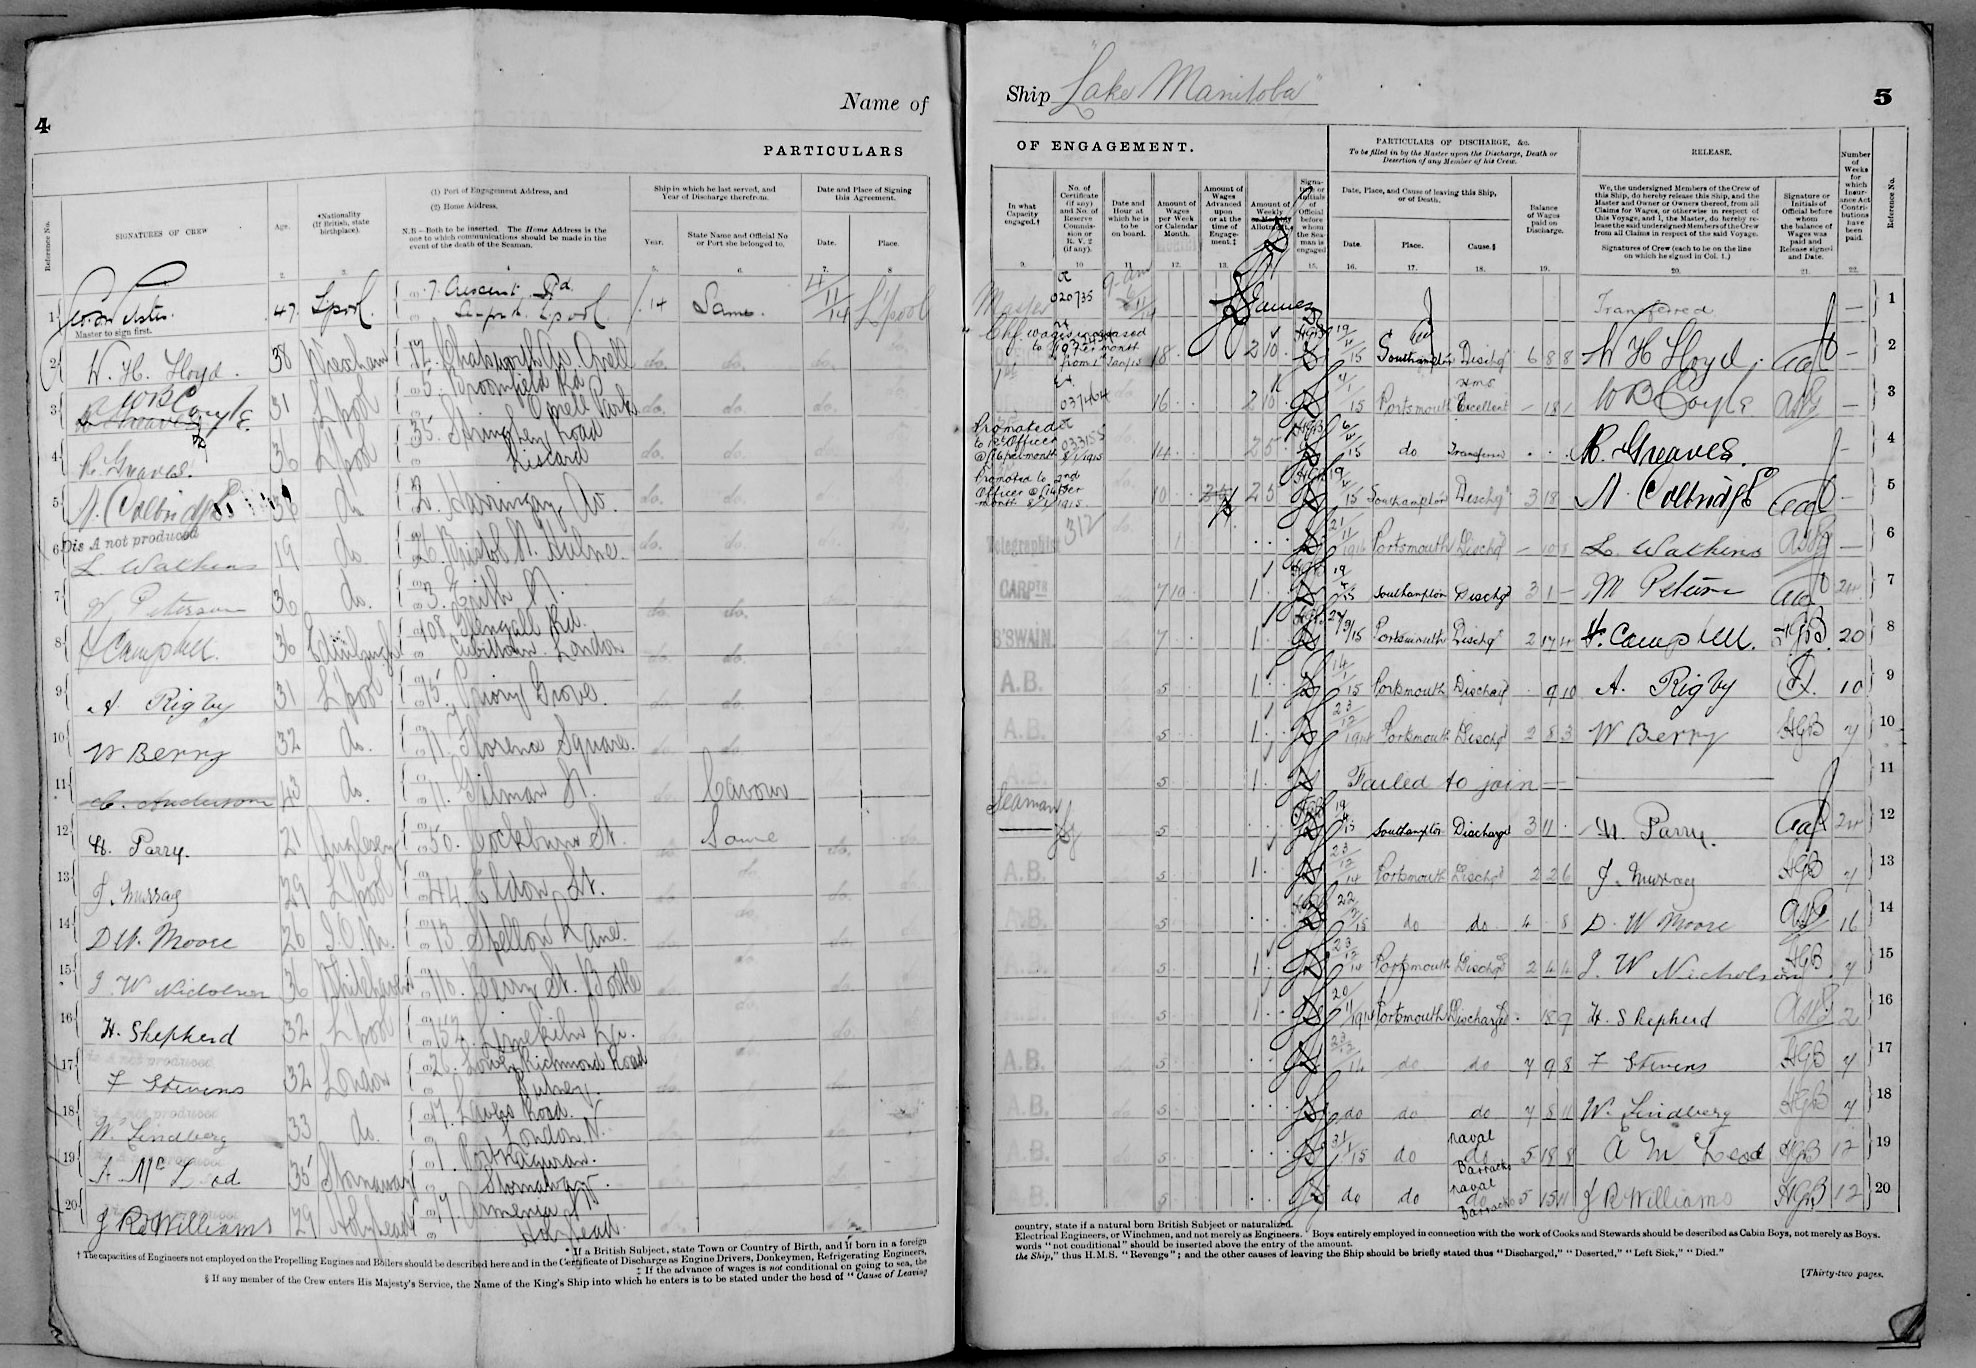 4
Name of
PARTICULARS
Reference No.
SIGNATURES OF CREW
Age.
*Nationality
(If British, state
birthplace).
(1) Port of Engagement Address, and
(2) Home Address.
N.B.—Both to be inserted. The Home Address is the
one to which communications should be made in the
event of the death of the Seaman.
Ship in which he last served, and
Year of Discharge therefrom.
Year.
State Name and Official No
or Port she belonged to.
Date and Place of Signing
this Agreement.
Date.
Place.
2. 3. 4 5. 6. 7. 8
1 47. L'pool. 7. Crescent Rd 14 Same. 4/11/14 L'pool
Master to sign first.
2 W. H. Lloyd. 38 Wrexham 12. Chatsworth Av. Orrell do. do.
3 WB Coyle 31 L'pool 5. Broomfield Rd Orrell Park do. do.
4 R. Greaves. 36 L'pool 35 Road Liscard do. do.
5 N. Colbridge 38 do 2. Av. do. do.
Dis A not produced
6 L. Watkins 19 do. 26 Bristol St. Hulme. do. do.
7 Peterson 36 do. 3. Keith St. do. do.
8 H Campbell. 36 Edinburgh 108 Glengall Rd. Cubitt Town. London do. do.
9 A Rigby 31 L'pool 75. Priory Grove. do. do.
10 W Berry 32 do. 11. Florence Square. do. do.
11 C. Anderson 43 do. 11. Gilman St. do Cavour
12 H. Parry. 21 Anglesey 50. Cockburn St. do Same do.
13 J. Murray 29 L'pool 44. Eldon St. do do.
14 D W. Moore 26 I.O.M. 13. Spellow Lane. do do. do.
15 J. W Nicholson 36 110. St. Bootle do do. do.
16 H. Shepherd 32 L'pool 152. Limekiln La. do. do.
Dis A not produced
17 F Stevens 32 London 26. Lower Richmond Road Putney. do do. do.
Dis A not produced
18 W. Lindberg 33 do. 17. Road. London N. do
19 A McLeod 35 Stornoway Stornoway.
20 J R Williams 29 Holyhead 17. Armenia St. Holyhead.
* If a British Subject, state Town or Country of Birth, and if born in a foreign
† The capacities of Engineers not employed on the Propelling Engines and Boilers should be described here and in the Certificate of Discharge as Engine Drivers, Donkeymen, Refrigerating Engineers,
‡ If the advance of wages is not conditional on going to sea, the
§ If any member of the Crew enters His Majesty's Service, the Name of the King's Ship into which he enters is to be stated under the head of "Cause of Leaving
Ship "Lake Manitoba"
5
OF ENGAGEMENT.
PARTICULARS OF DISCHARGE, &c.
To be filled in by the Master upon the Discharge, Death or
Desertion of any Member of his Crew.
RELEASE.
Number
of
Weeks
for
which
Insur-
ance Act
Contri-
butions
have
been
paid.
Reference No.
In what
Capacity
engaged.†
No. of
Certificate
(if any)
and No. of
Reserve
Commis-
sion or
R. V. 2
(if any).
Date and
Hour at
which he is
to be
on board.
Amount of
Wages
per Week
or Calendar
Month.
Amount of
Wages
Advanced
upon
or at the
time of
Engage-
ment.‡
Amount of
Weekly
or Monthly
Allotment.
Signa-
ture or
Initials
of
Official
before
whom
the Sea-
man is
engaged
Date, Place, and Cause of leaving this Ship,
or of Death.
Date.
Place.
Cause.§
Balance
of Wages
paid on
Discharge.
We, the undersigned Members of the Crew of
this Ship, do hereby release this Ship, and the
Master and Owner or Owners thereof, from all
Claims for Wages, or otherwise in respect of
this Voyage, and I, the Master, do hereby re-
lease the said undersigned Members of the Crew
from all Claims in respect of the said Voyage.
Signatures of Crew (each to be on the line
on which he signed in Col. 1.)
Signature or
Initials of
Official before
whom
the balance of
Wages was
paid and
Release signed
and Date.
9. 10. 11 12. 13. 15. 16. 17. 18. 19. 20. 21. 22.
Master 020735 Transferred — 1
wages increased to per month from 1st Jan/15 18 2 10 19/4/15 Southampton Dischgd 6 8 8 W H Lloyd. — 2
1st 037464 16 2 15 Portsmouth H.M.S. Excellent — 18 1 W B Coyle — 3
Promoted to 1st Officer @ £16 per month 8/1/1915 033155 14 25 6/4/15 do Transferred R. Greaves. — 4
Promoted to 2nd Officer @ £14 per month 8/1/1915 10 25 19/4/15 Southampton Dischgd 3 18 N. Colbridge — 5
Telegraphist 312 1 21/11/1914 Portsmouth Dischgd — 10 8 L. Watkins — 6
CARPTR 7 10 1 19/4/15 Southampton Dischgd 3 1 — 7
B'SWAIN. 7 1 Portsmouth Dischgd 2 17 4 H. Campbell. HGB. 20 8
A.B. 5 1 14/1/15 Portsmouth 9 10 A. Rigby 10 9
A.B. 5 1 23/12/1914 Portsmouth Dischgd 2 8 3 W Berry HGB 7 10
A.B. 5 1 Failed to join — 11
Seaman 5 19/4/15 Southampton Discharged 3 11 H. Parry. 24 12
A.B. 5 1 23/12/14 Portsmouth Dischgd 2 2 6 J. Murray HGB 7 13
A.B. 5 do do 4 8 D. W Moore 16 14
A.B. 5 1 23/12/14 Portsmouth Dischgd 2 4 4 J. W Nicholson HGB 7 15
A.B. 5 1 20/11/1914 Portsmouth Discharged 18 9 H. Shepherd 2 16
A.B. 5 23/12/14 do do 7 9 8 F Stevens HGB 7 17
A.B. 5 do do do 7 8 11 W. Lindberg HGB 7 18
A.B. 5 31/1/15 do naval Barracks 5 18 8 A McLeod HGB 12 19
A.B. 5 do do naval Barracks 5 15 11 J R Williams HGB 12 20
country, state if a natural born British Subject or naturalized.
Electrical Engineers, or Winchmen, and not merely as Engineers. Boys entirely employed in connection with the work of Cooks and Stewards should be described as Cabin Boys, not merely as Boys.
words "not conditional" should be inserted above the entry of the amount.
the Ship," thus H.M.S. "Revenge"; and the other causes of leaving the Ship should be briefly stated thus "Discharged," "Deserted," "Left Sick," "Died."
[Thirty-two pages.